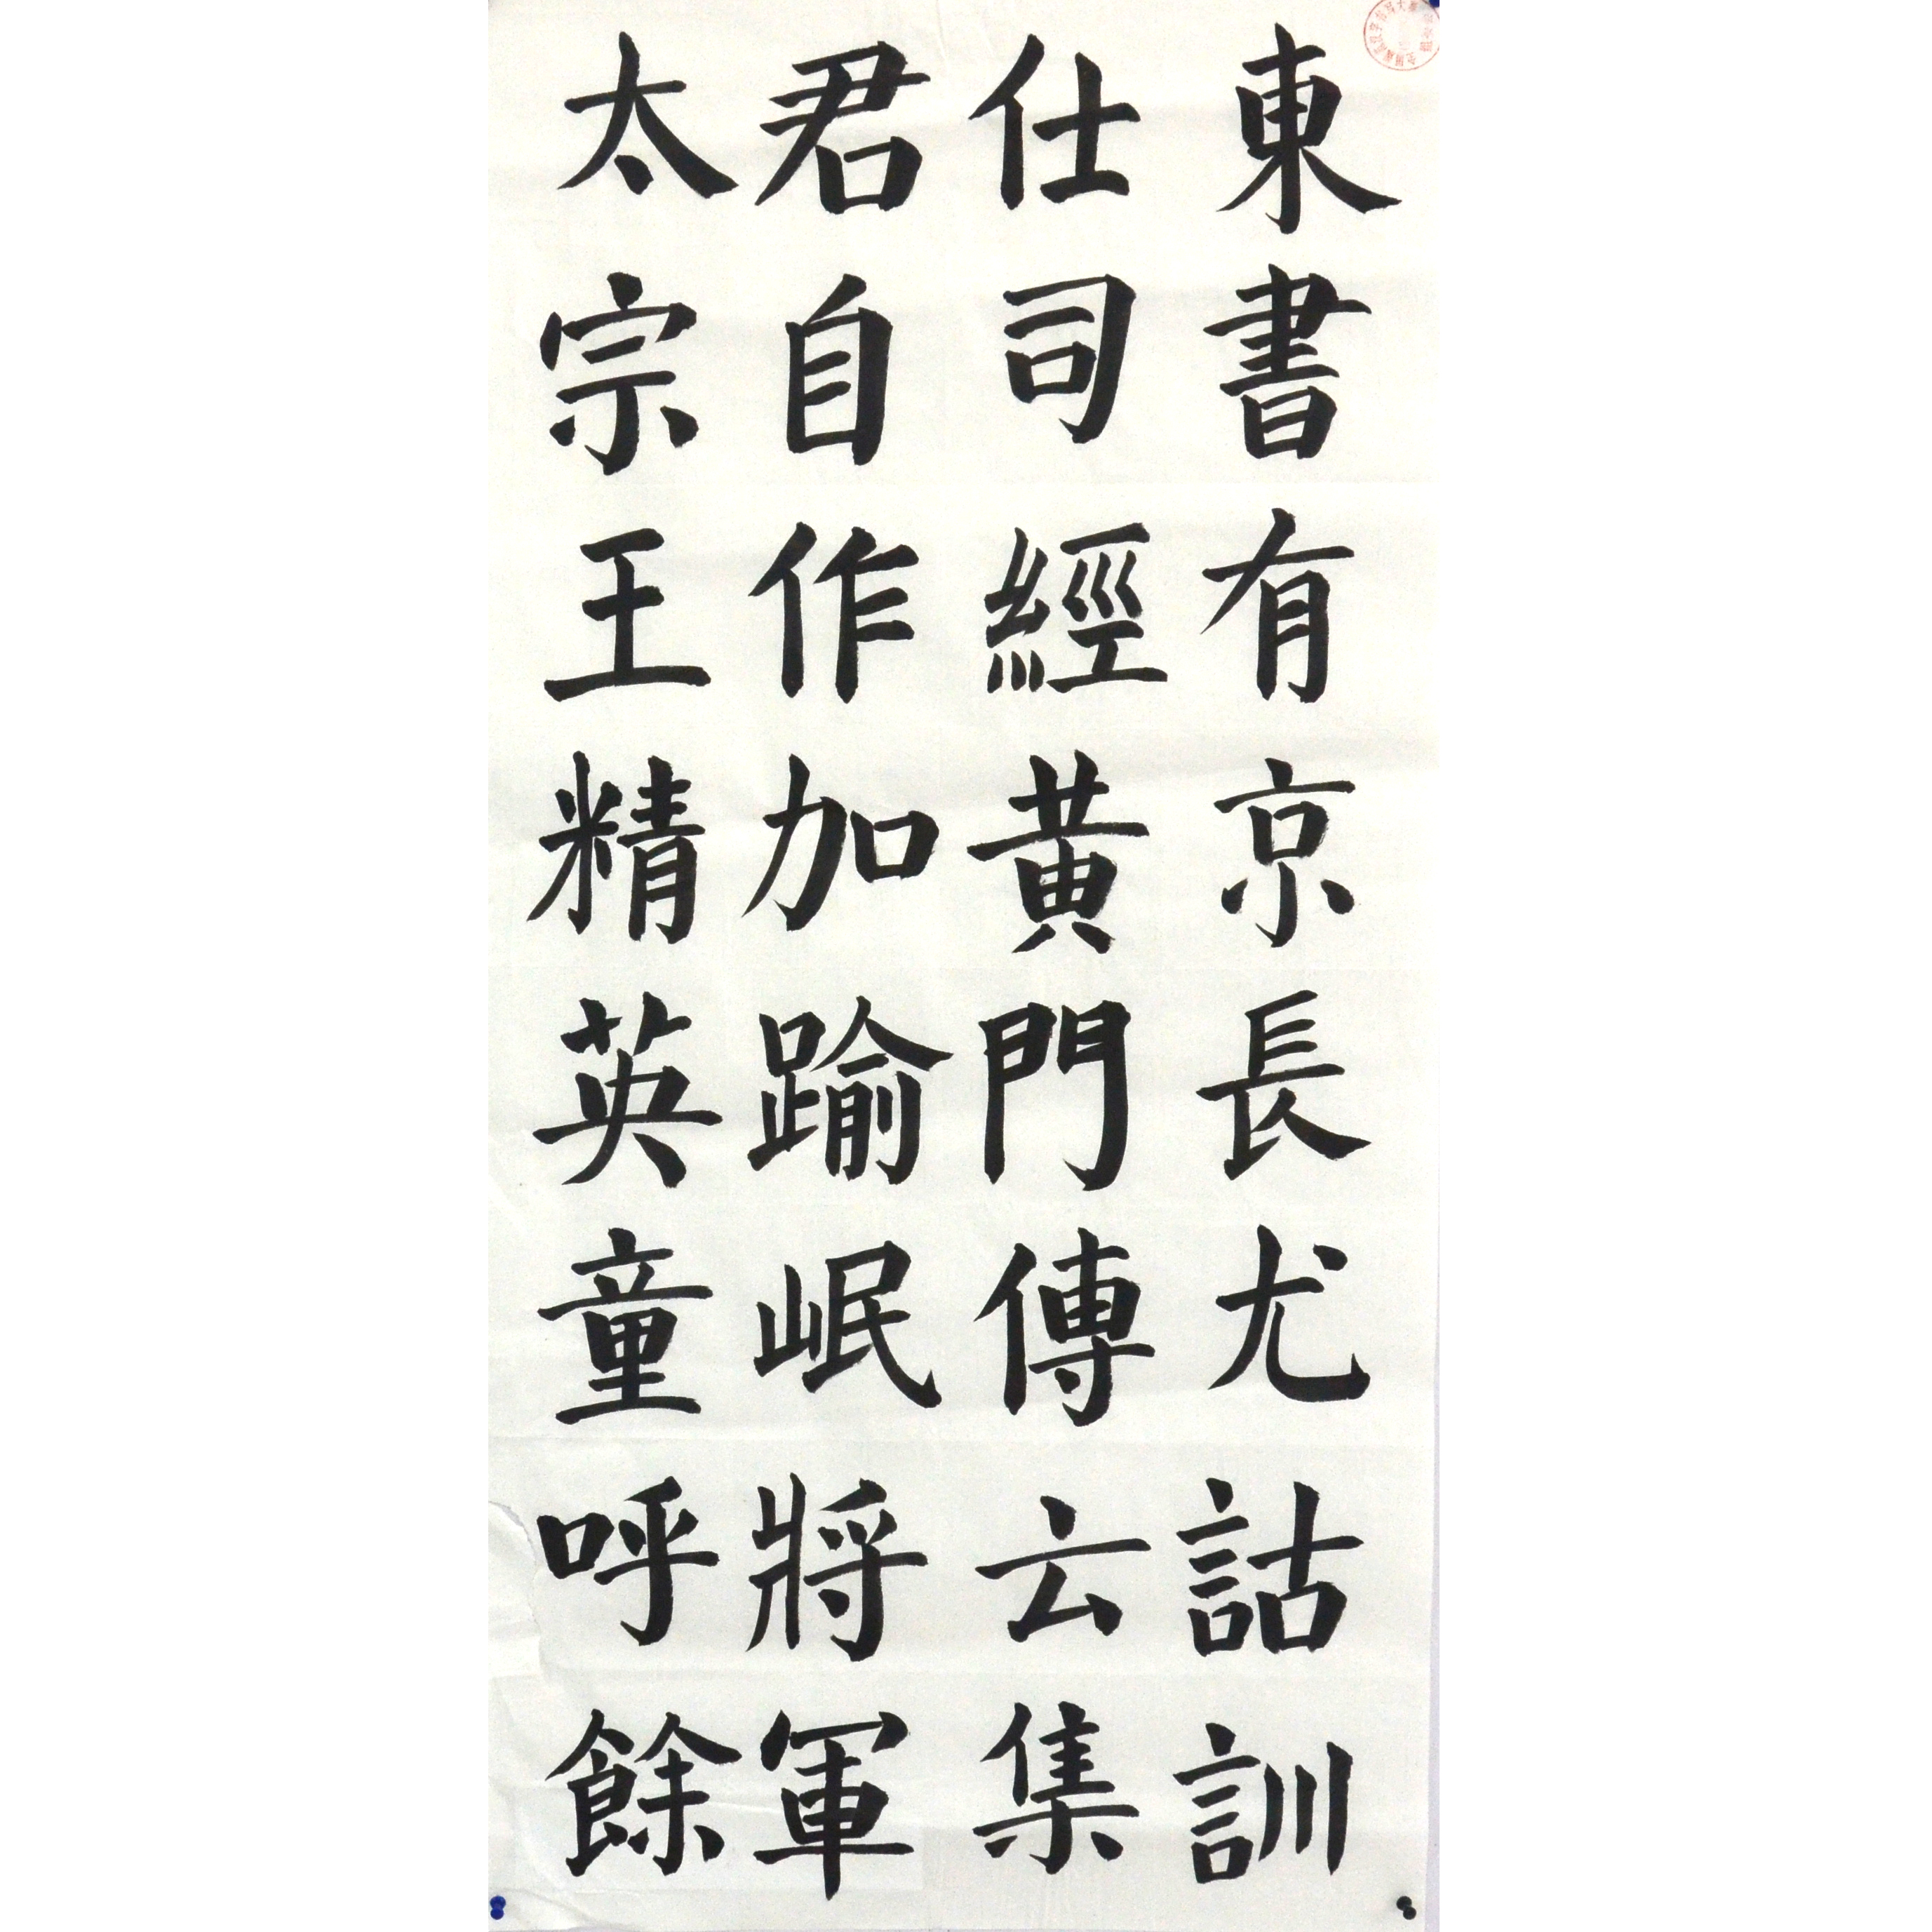 東書有京長尤詁訓
仕司經黄門傳云集
君自作加踰岷將軍
太宗王精英童呼餘